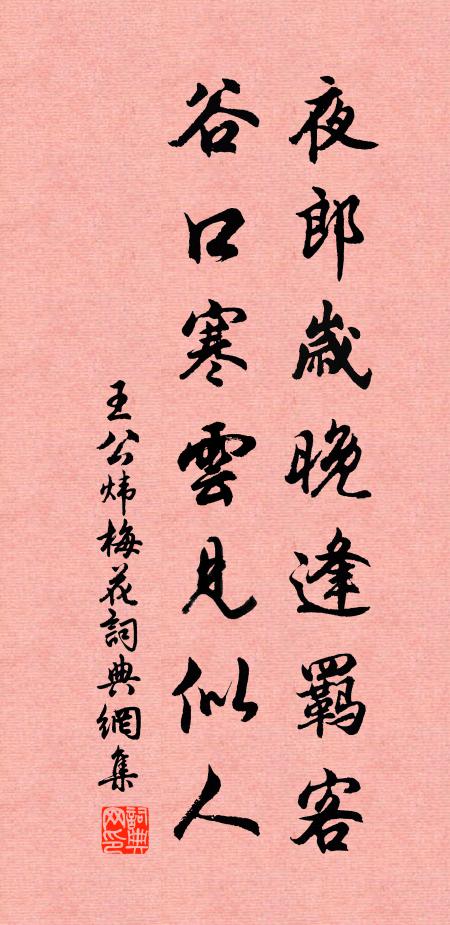 夜郎歲晚逢羈客
谷口寒雲見似人
王公煒梅花詞典網集
詞典网印